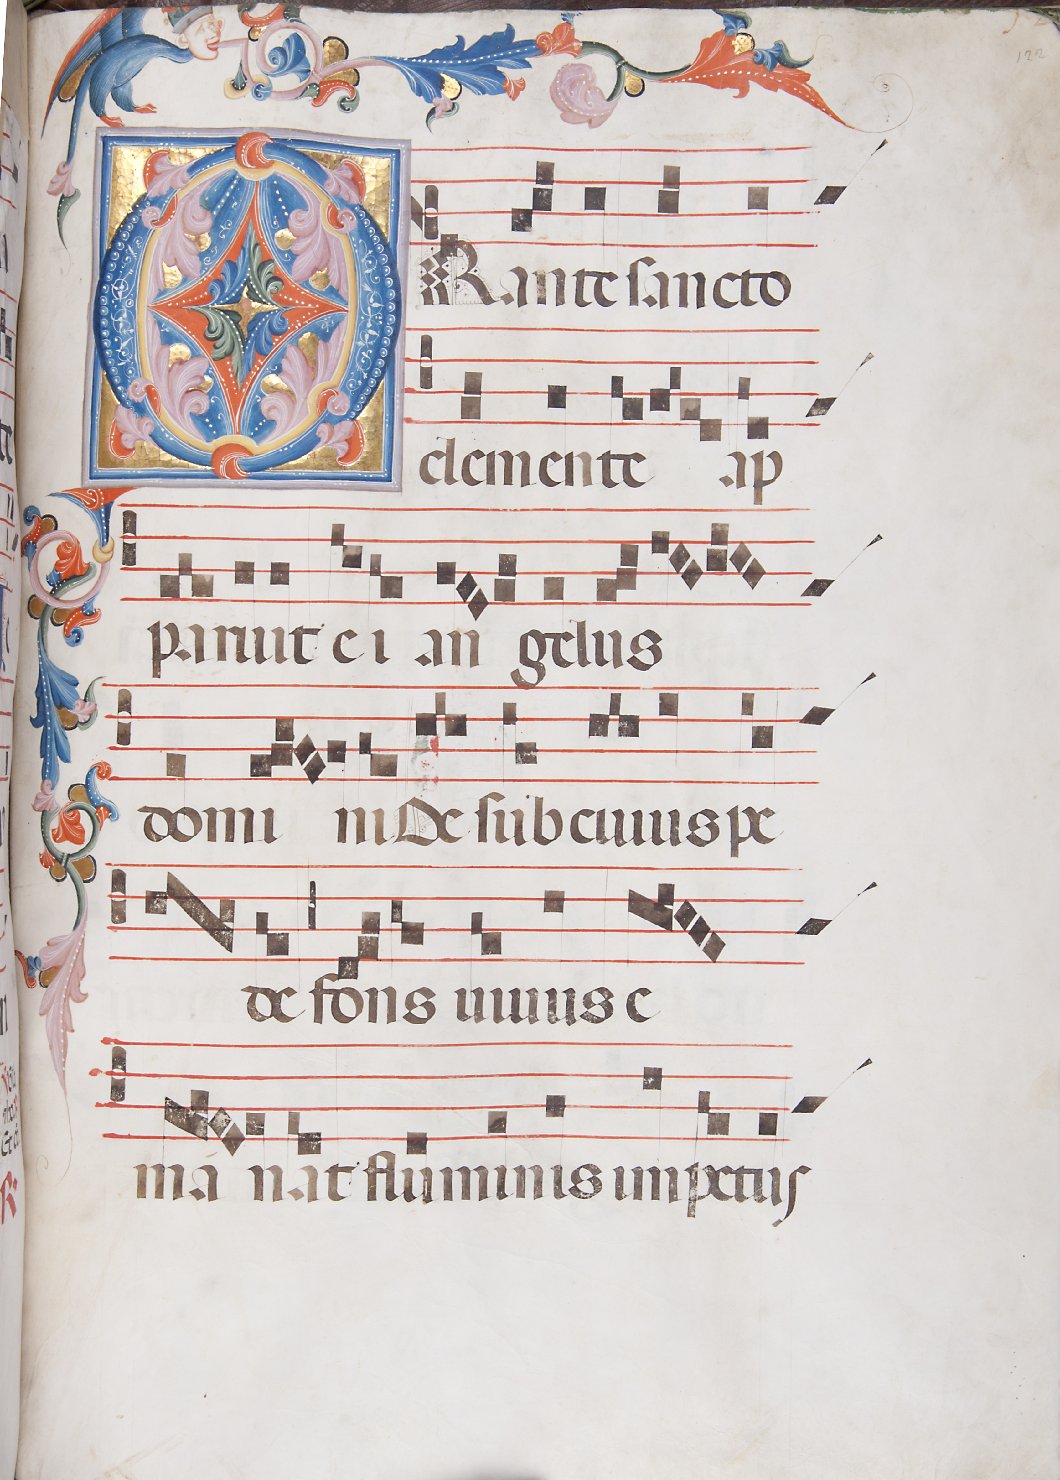 122
ORante sancto
clemente ap
paruit e i an gelus
domi ni De sub cuius pe
de fons uiuus e
ma nat fluminis impetus